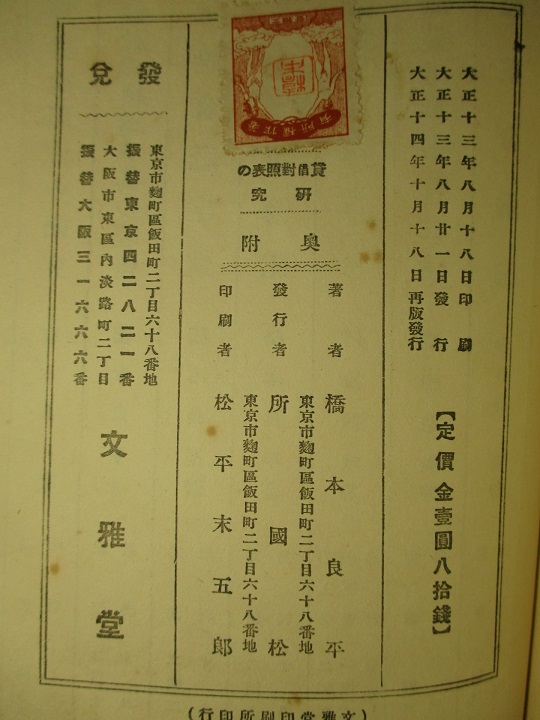 大正十三年八月十八日印刷
大正十三年八月廿一日發行
大正十四年十月十八日再版發行
【定價金壹圓八拾錢】
貸借對照表の
研究
奥附
著者 橋本良平
東京市麴町區飯田町二丁目六十八番地
發行者 所國松
東京市麴町區飯田町二丁目六十八番地
印刷者 松平末五郎
發兌
東京市麴町區飯田町二丁目六十八番地
振替東京四二八二一番
大阪市東區內淡路町二丁目
振替大阪三一六六六番
文雅堂
(文雅堂印刷所印行)